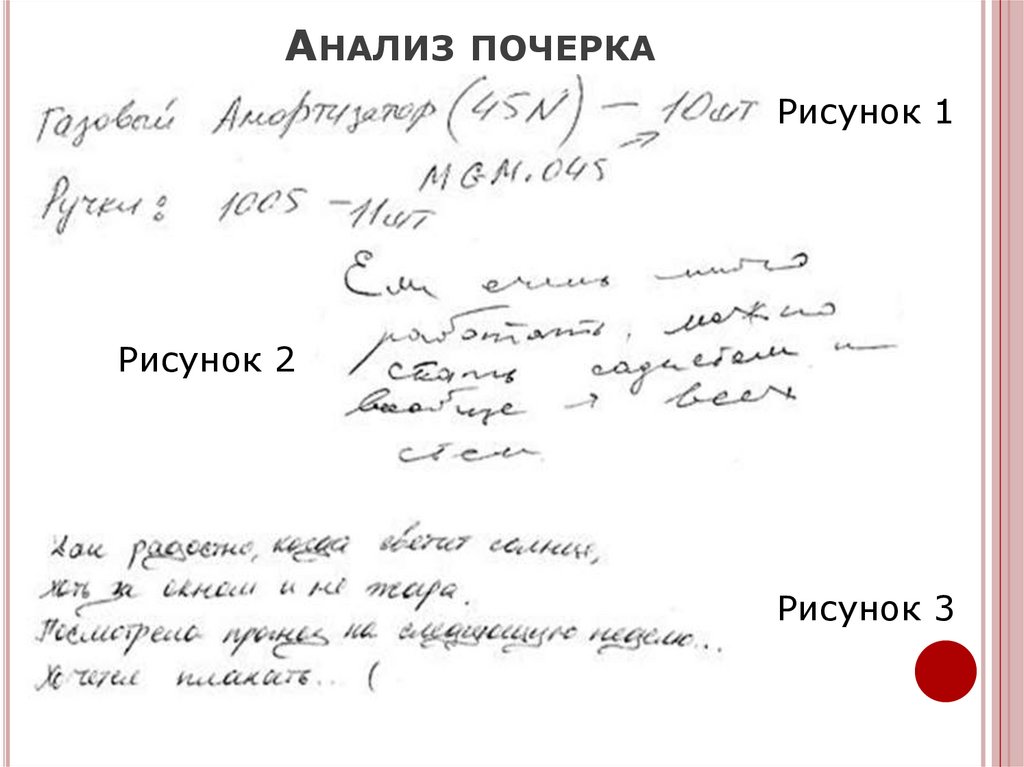 АНАЛИЗ ПОЧЕРКА
Газовый Амортизатор (45N) — 10шт
Рисунок 1
MGM.045
Ручки: 1005 – 11шт
Если очень много
работать, можно
Рисунок 2
стать садистом и
вообще всех
съем
Как радостно, когда светит солнце,
Хоть за окном и не жара.
Рисунок 3
Посмотрела прогноз на следующую неделю...
Хочется плакать... (